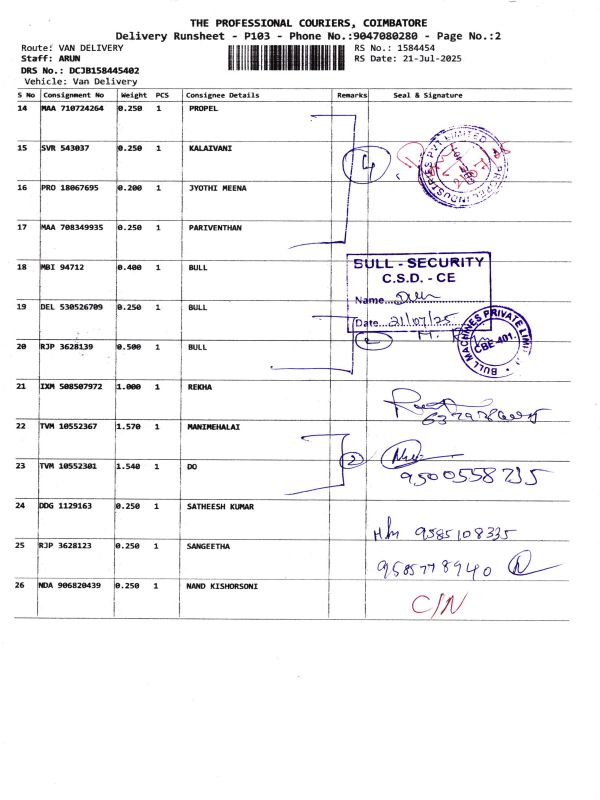 THE PROFESSIONAL COURIERS, COIMBATORE
Delivery Runsheet - P103 - Phone No.:9047080280 - Page No.:2
Route: VAN DELIVERY RS No.: 1584454
Staff: ARUN RS Date: 21-Jul-2025
DRS No.: DCJB158445402
Vehicle: Van Delivery
S No Consignment No Weight PCS Consignee Details Remarks Seal & Signature
14 MAA 710724264 0.250 1 PROPEL
15 SVR 543037 0.250 1 KALAIVANI
4
PROPEL INDUSTRIES PVT LIMITED
16 PRO 18067695 0.200 1 JYOTHI MEENA
17 MAA 708349935 0.250 1 PARIVENTHAN
18 MBI 94712 0.400 1 BULL
BULL - SECURITY
C.S.D. - CE
Name
19 DEL 530526709 0.250 1 BULL
Date 21/07/25
BULL MACHINES PRIVATE LIMIT
CBE-401.
20 RJP 3628139 0.500 1 BULL
21 IXM 508507972 1.000 1 REKHA
22 TVM 10552367 1.570 1 MANIMEHALAI
23 TVM 10552301 1.540 1 DO
2
9500558215
24 DDG 1129163 0.250 1 SATHEESH KUMAR
9585108335
25 RJP 3628123 0.250 1 SANGEETHA
9585778940
26 NDA 906820439 0.250 1 NAND KISHORSONI
C/N